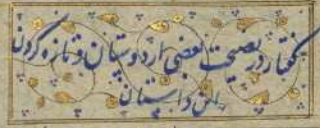 گفتار در نصیحت بعضی از دوستان و تازه کردن
این داستان